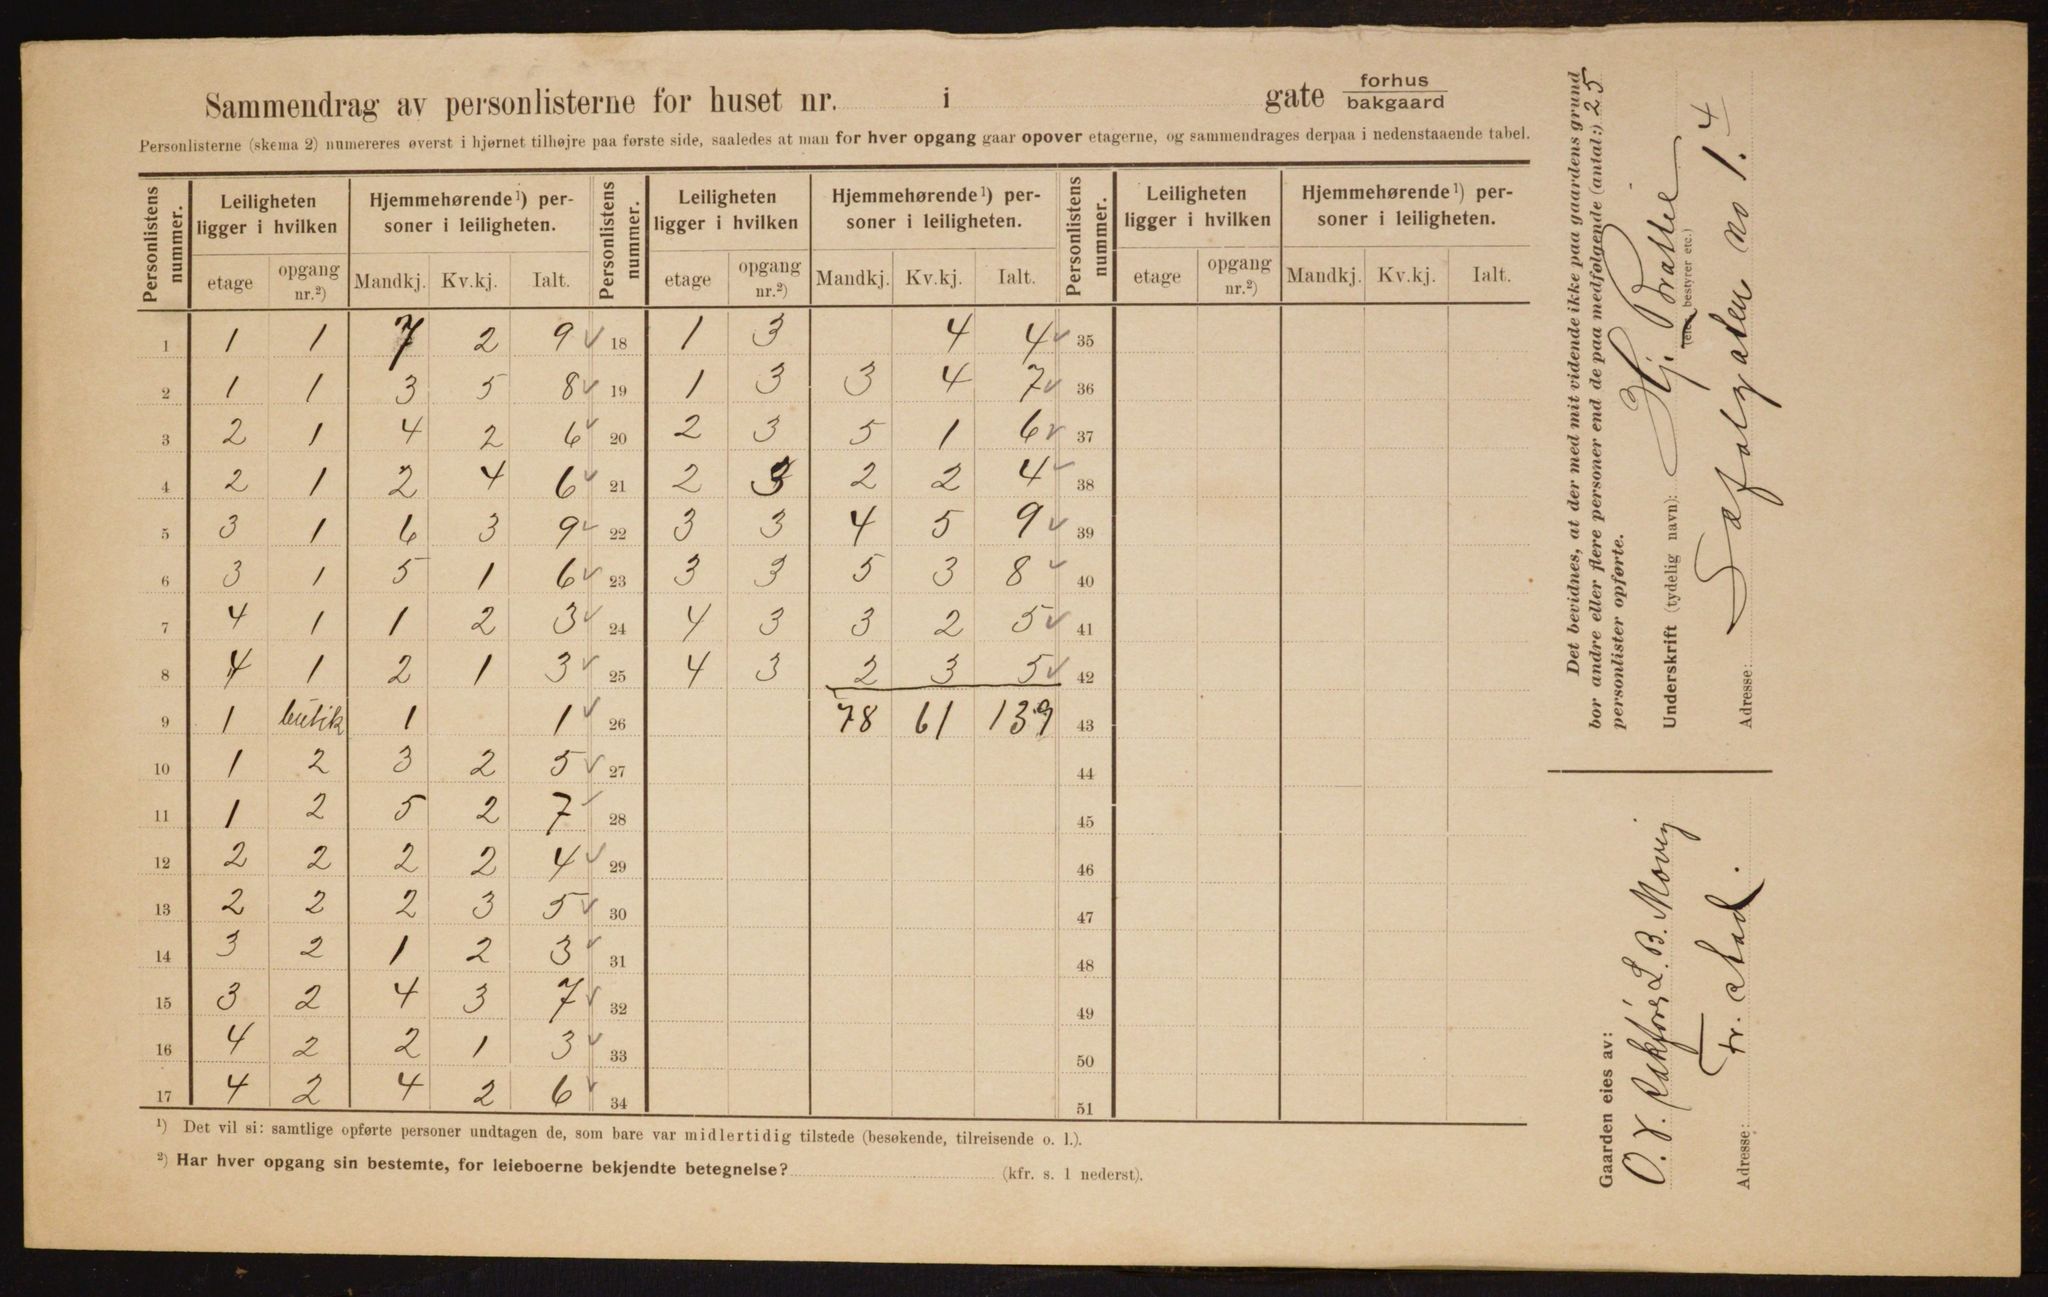 Sammendrag av personlisterne for huset nr. i gate forhus bakgaard
Personlisterne (skema 2) numereres øverst i hjørnet tilhøjre paa første side, saaledes at man for hver opgang gaar opover etagerne, og sammendrages derpaa i nedenstaaende tabel.
Personlistens nummer. Leiligheten ligger i hvilken Hjemmehørende¹) personer i leiligheten. Personlistens nummer. Leiligheten ligger i hvilken Hjemmehørende¹) personer i leiligheten. Personlistens nummer. Leiligheten ligger i hvilken Hjemmehørende¹) personer i leiligheten.
etage opgang nr.²) Mandkj. Kv.kj. Ialt. etage opgang nr.²) Mandkj. Kv.kj. Ialt. etage opgang nr.²) Mandkj. Kv.kj. Ialt.
1 1 1 7 2 9 ✓ 18 1 3 4 4 ✓ 35
2 1 1 3 5 8 ✓ 19 1 3 3 4 7 ✓ 36
3 2 1 4 2 6 ✓ 20 2 3 5 1 6 ✓ 37
4 2 1 2 4 6 ✓ 21 2 3 2 2 4 ✓ 38
5 3 1 6 3 9 ✓ 22 3 3 4 5 9 ✓ 39
6 3 1 5 1 6 ✓ 23 3 3 5 3 8 ✓ 40
7 4 1 1 2 3 ✓ 24 4 3 3 2 5 ✓ 41
8 4 1 2 1 3 ✓ 25 4 3 2 3 5 ✓ 42
9 1 butik 1 1 ✓ 26 78 61 139 43
10 1 2 3 2 5 ✓ 27 44
11 1 2 5 2 7 ✓ 28 45
12 2 2 2 2 4 ✓ 29 46
13 2 2 2 3 5 ✓ 30 47
14 3 2 1 2 3 ✓ 31 48
15 3 2 4 3 7 ✓ 32 49
16 4 2 2 1 3 ✓ 33 50
17 4 2 4 2 6 ✓ 34 51
¹) Det vil si: samtlige opførte personer undtagen de, som bare var midlertidig tilstede (besøkende, tilreisende o. l.).
²) Har hver opgang sin bestemte, for leieboerne bekjendte betegnelse? (kfr. s. 1 nederst).
Det bevidnes, at der med mit vidende ikke paa gaardens grund
bor andre eller flere personer end de paa medfølgende (antal:) 25
personlister opførte.
Underskrift (tydelig navn): Hj. Brattlie
(eier, bestyrer etc.)
Adresse: Tøfolgaten No 1. 4
Gaarden eies av:
L. B. Movig
Adresse: Fr. stad.